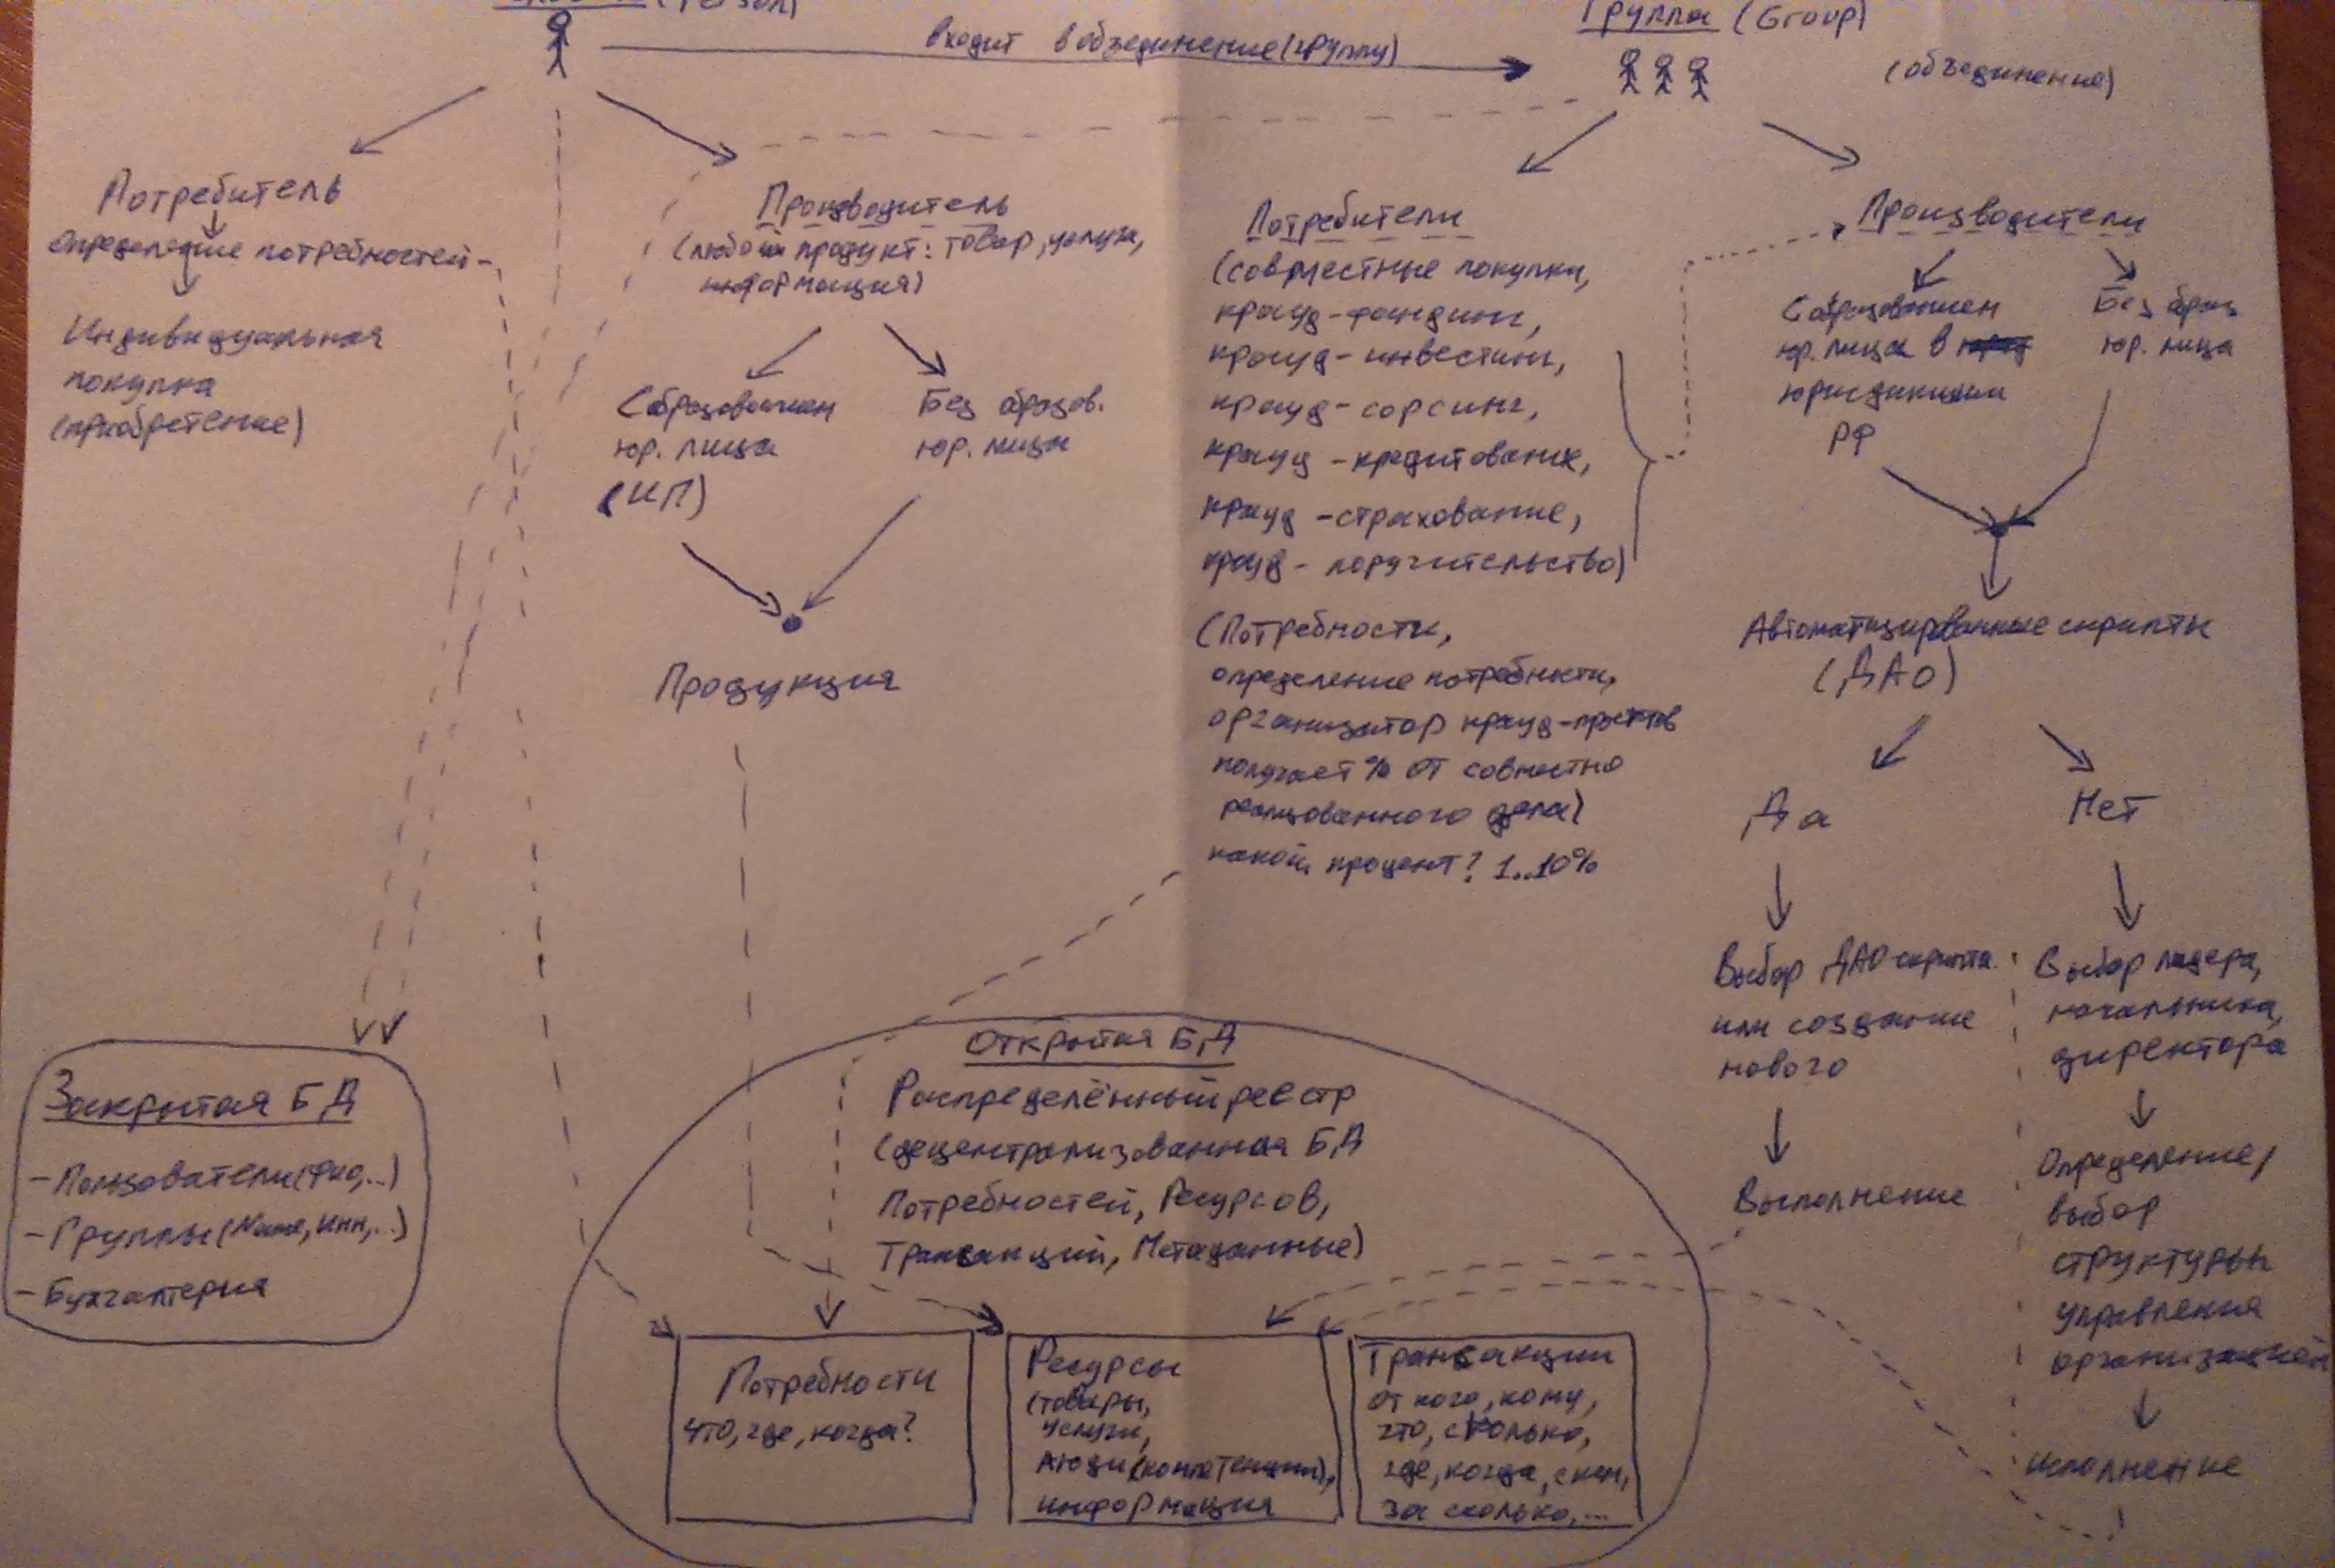 (Person)
входит в объединение (группу)
Группа (Group)
(объединение)
Потребитель
определение потребностей
Индивидуальная
покупка
(приобретение)
Производитель
(любой продукт: товар, услуга,
информация)
С образованием
юр. лица
(ИП)
Без образов.
юр. лица
Продукция
Потребители
(совместные покупки,
крауд-фандинг,
крауд-инвестинг,
крауд-сорсинг,
крауд-кредитование,
крауд-страхование,
крауд-поручительство)
(Потребности,
определение потребности,
организатор крауд-проектов
получает % от совместно
реализованного дела)
какой процент? 1..10%
Производители
С образованием
юр. лица в
юрисдикции
РФ
Без образ
юр. лица
Автоматизированные скрипты
(ДАО)
Да
Нет
Выбор ДАО скрипта
или создание
нового
Выполнение
Выбор лидера,
начальника,
директора
Определение,
выбор
структуры
управления
организацией
Исполнение
Закрытая БД
- Пользователи (ФИО,..)
- Группы (Name, ИНН,..)
- Бухгалтерия
Открытая БД
Распределённый реестр
(децентрализованная БД
Потребностей, Ресурсов,
Транзакций, Метаданные)
Потребности
что, где, когда?
Ресурсы
(товары,
услуги,
люди (компетенции),
информация
Трансакции
от кого, кому,
что, сколько,
где, когда, с кем,
за сколько,...